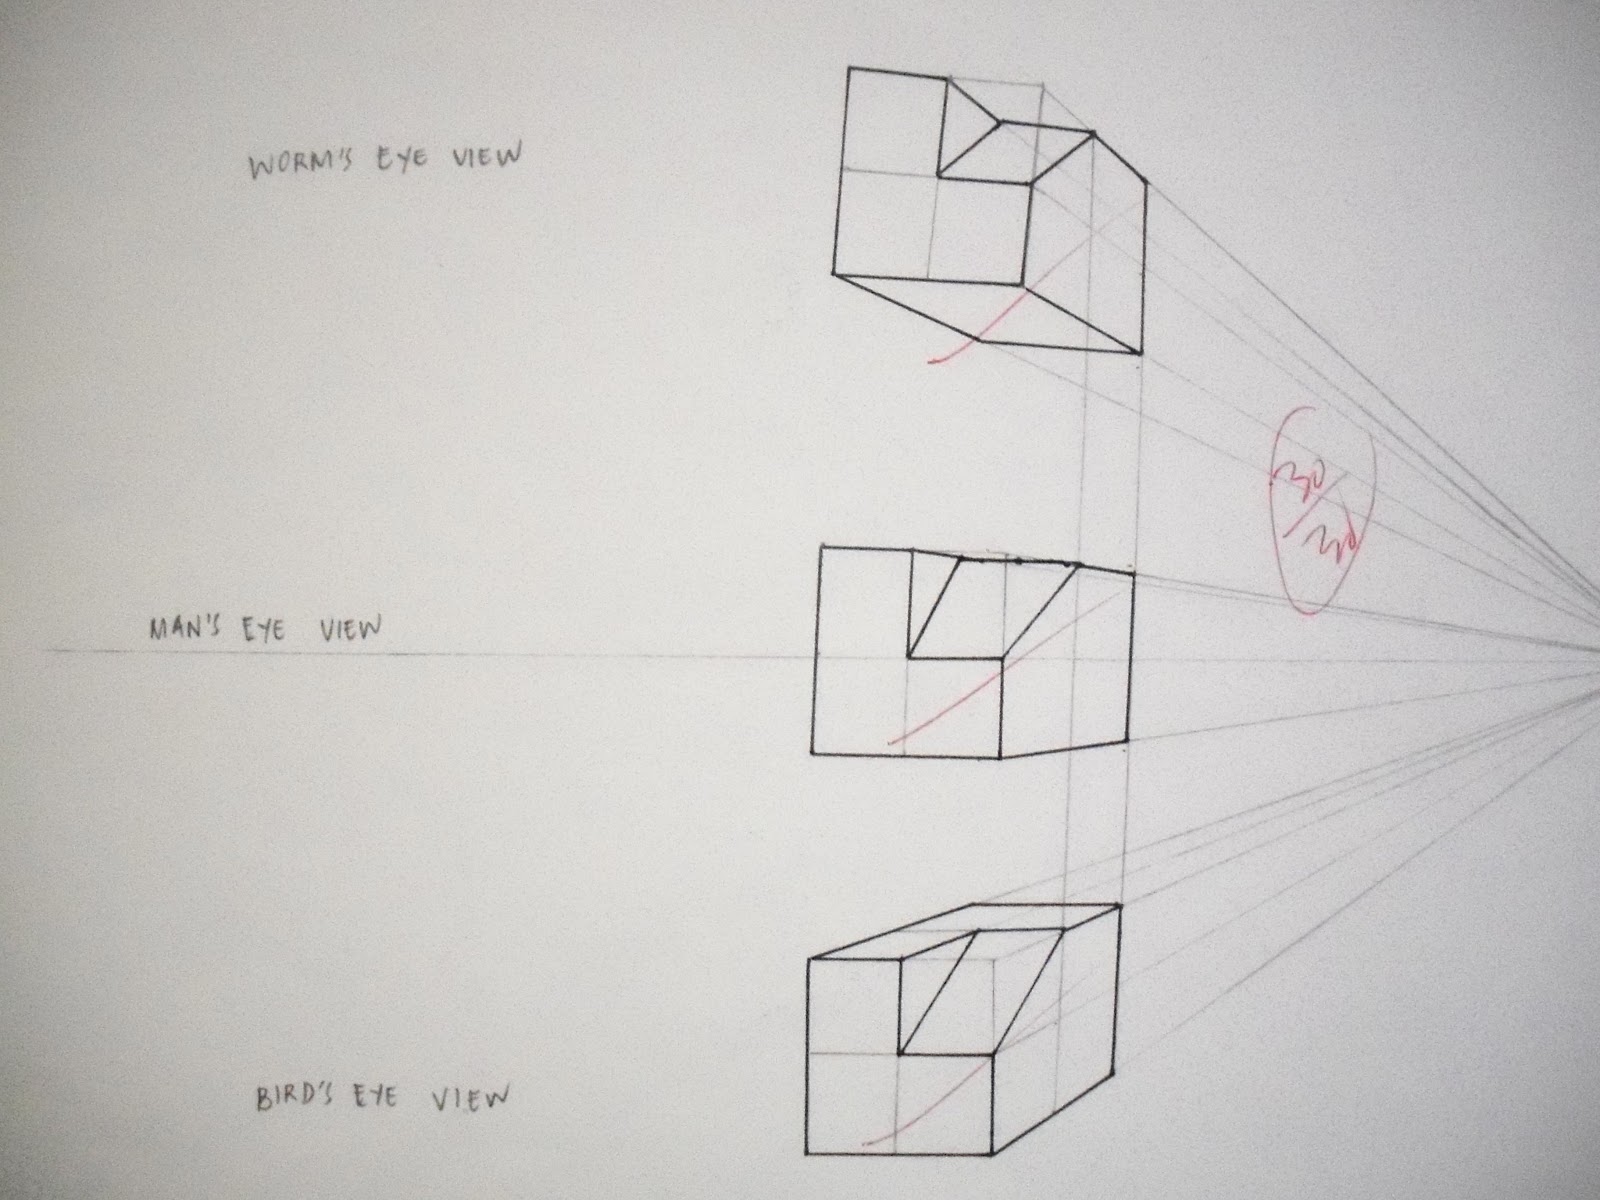 WORM'S EYE VIEW
30/30
MAN'S EYE VIEW
BIRD'S EYE VIEW